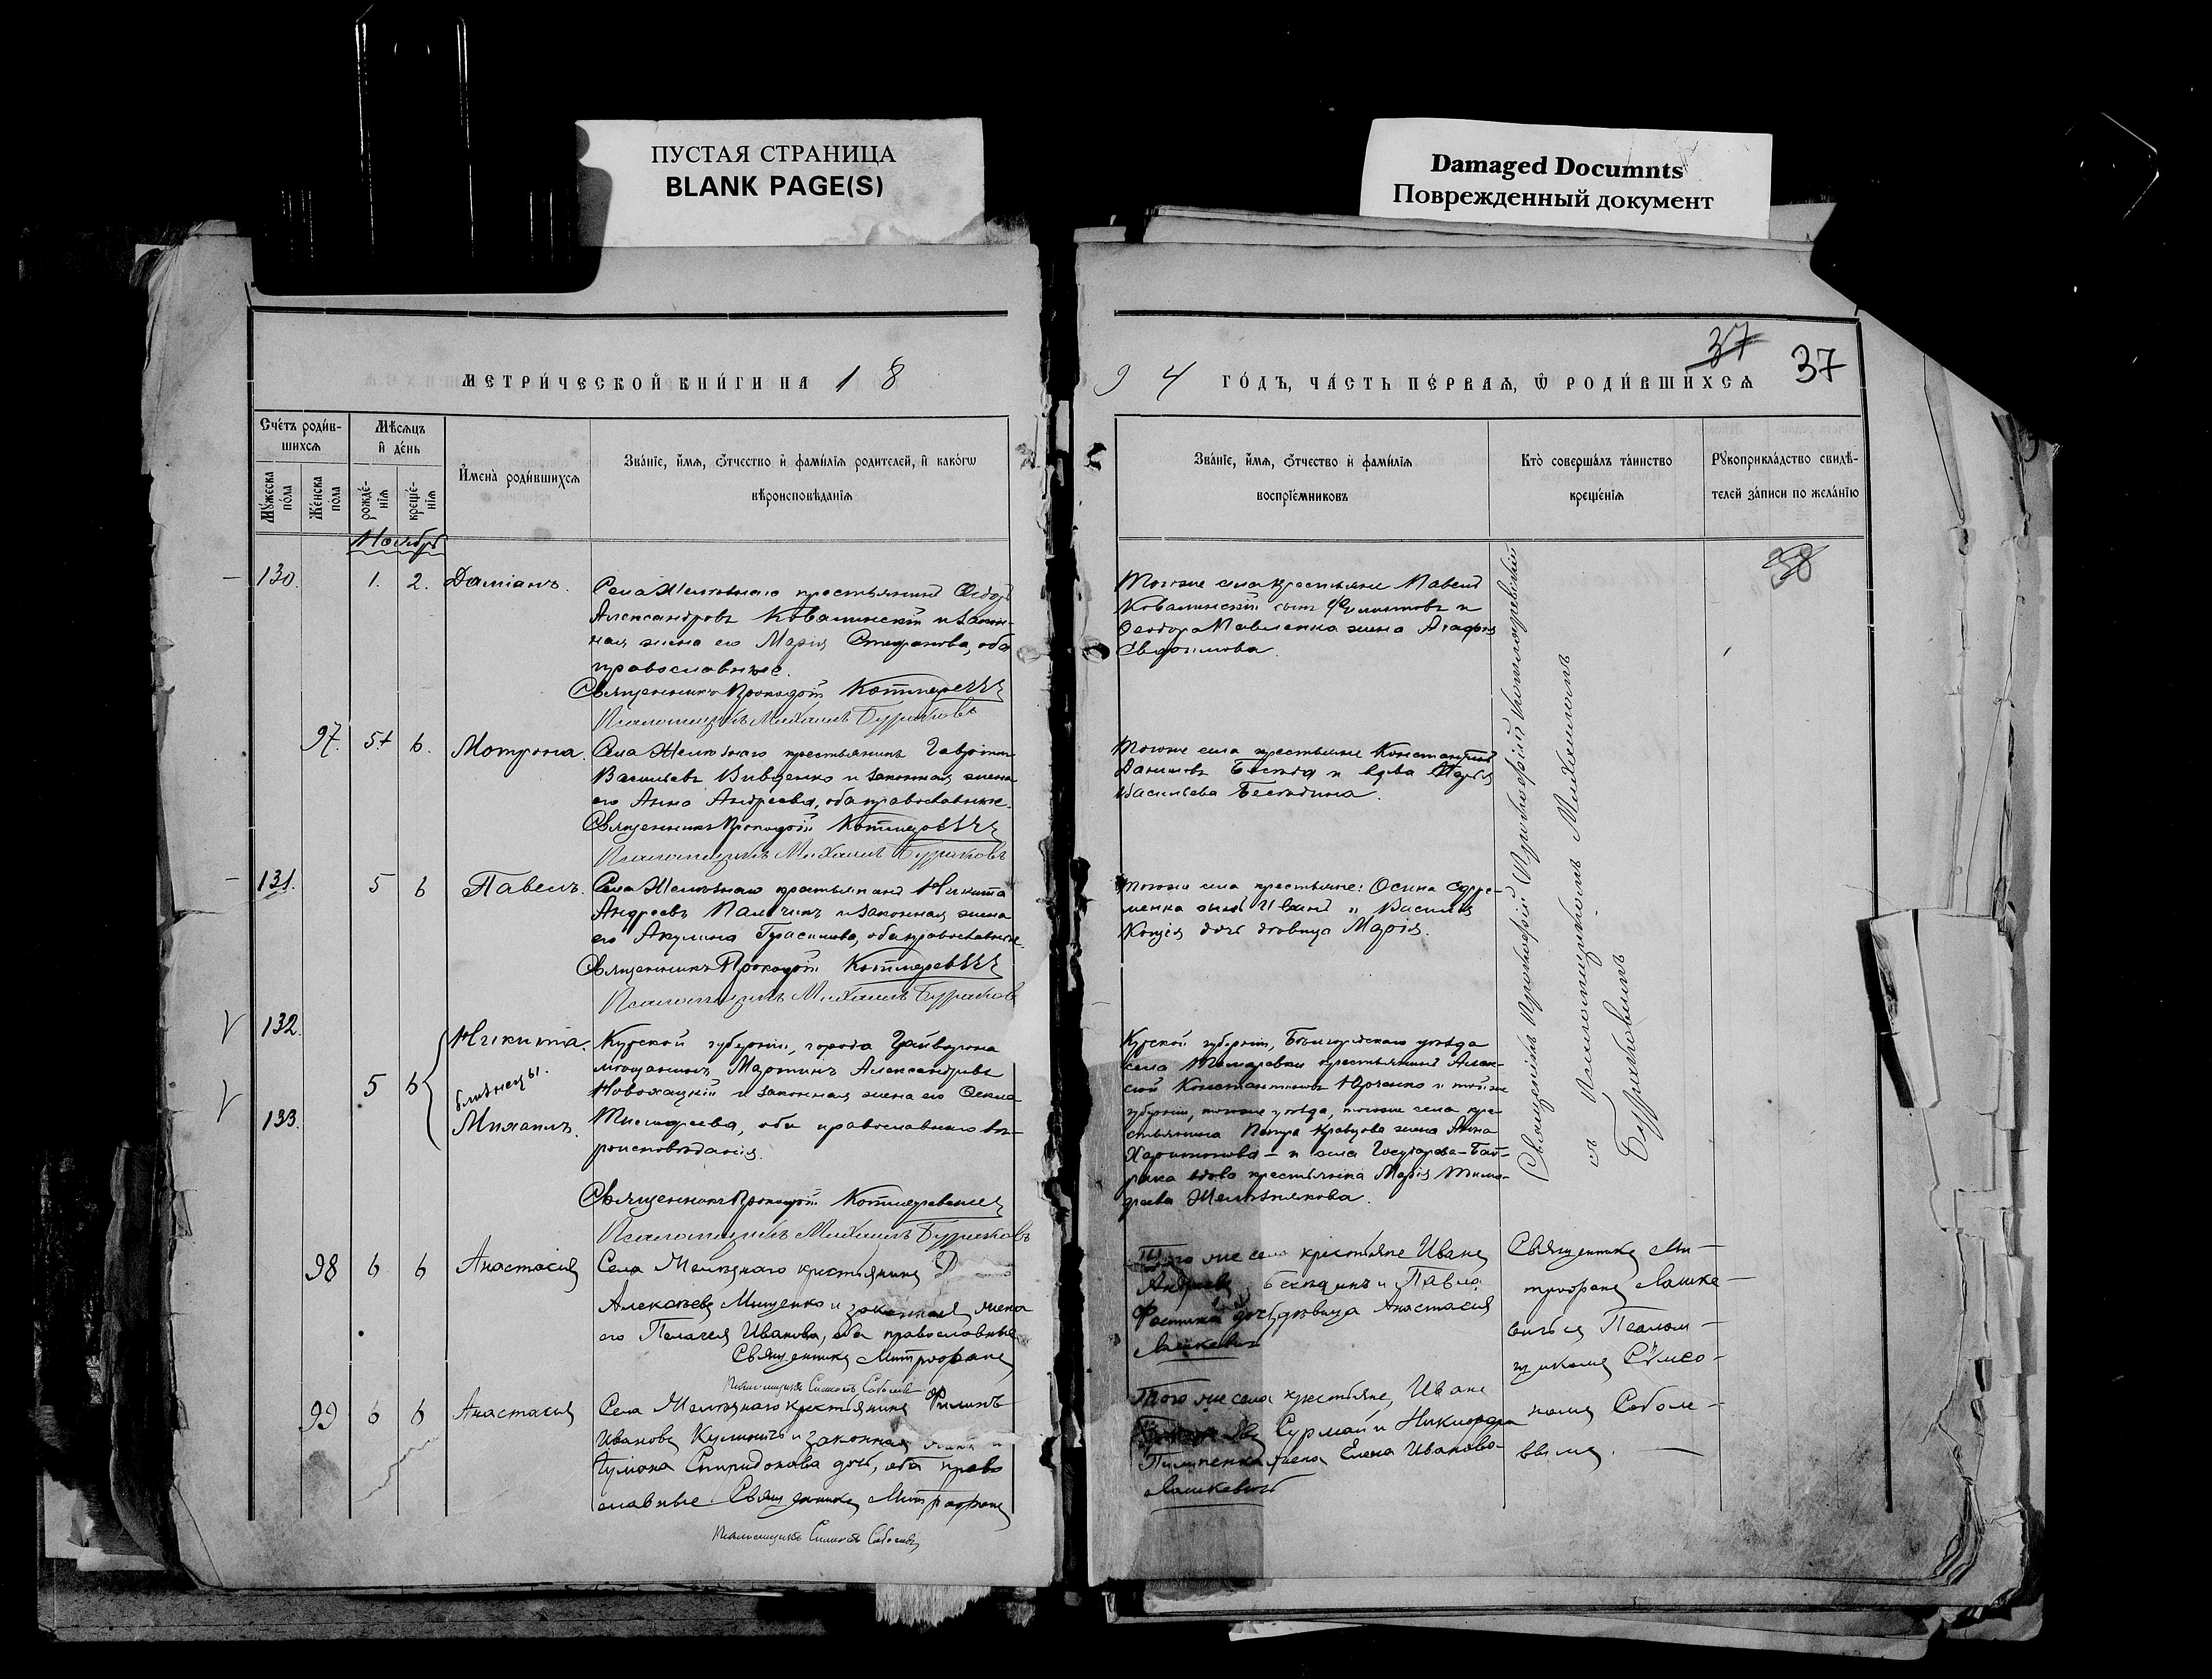 ПУСТАЯ СТРАНИЦА
BLANK PAGE(S)
Damaged Documnts
Поврежденный документ
МЕТРИ́ЧЕСКОЙ КНИ́ГИ НА 18
94 ГО́ДЪ, ЧА́СТЬ ПЕ́РВАѦ, Ѿ РОДИ́ВШИХСѦ
37
37
Счетъ роди́в-
шихсѧ
Мꙋ́жеска по́ла
Же́нска по́ла
Мѣ́сѧцъ
и҆ де́нь
рожде́-
нїѧ
креще́-
нїѧ
И҆мена̀ роди́вшихсѧ
Зва́нїе, и҆́мѧ, ѻ҆́тчество и҆ фами́лїѧ родителей, и҆ како́гѡ
вѣроисповѣ́данїѧ
Зва́нїе, и҆́мѧ, ѻ҆́тчество и҆ фами́лїѧ
воспрїе́мниковъ
Кто̀ соверша́лъ та́инство
креще́нїѧ
Рꙋкоприкла́дство свидѣ́-
телей за́писи по жела́нїю
Ноябрь
38
130. 1. 2. Даміанъ.
Села Желѣзнаго крестьянинъ Ѳедоръ
Александровъ Ковалинскій и закон-
ная жена его Марія Стефанова, оба
православные.
Священникъ Прокофій
Псаломщикъ Михаилъ Бурраковъ
Тогоже села крестьяне Павелъ
Ковалинскій сынъ и
Ѳеодора Павленка жена Агафія
Евдокимова.
97. 5+ 6. Мотрона.
Села Желѣзнаго крестьянинъ Гавріилъ
Васильевъ Вивденко и законная жена
его Анна Андреева, оба православные.
Священникъ Прокофій
Псаломщикъ Михаилъ Бурраковъ
Тогоже села крестьяне Константинъ
Даниловъ Бескіда и вдова Марія
Васильева
131. 5 6 Павелъ.
Села Желѣзнаго крестьянинъ Никита
Андреевъ и законная жена
его Акулина Герасимова, оба православные.
Священникъ Прокофій
Псаломщикъ Михаилъ Бурраковъ
Тогоже села крестьяне: Осипа Ефре-
менка сынъ Иванъ и Василія
дочь дѣвица Марія.
132. 5 6 Никита.
близнецы.
133. Михаилъ.
Курской губерніи, города Грайворона
мѣщанинъ Мартинъ Александровъ
Новохацкій и законная жена его Ѳекла
Тимоѳеева, оба православнаго вѣ-
роисповѣданія.
Священникъ Прокофій
Псаломщикъ Михаилъ Бурраковъ
Курской губерніи, Бѣлгородскаго уѣзда
села Томаровки крестьянинъ Алек-
сѣй Константиновъ Юрченко и той же
губерніи, тогоже уѣзда, тогоже села кре-
стьянина Петра Кравцова жена Анна
Харитонова — и села Государева-Бай-
рака вдова крестьянка Марія Тимо-
ѳеева Желѣзнякова.
Священникъ Прокофій
съ Псаломщикомъ Михаиломъ
Бурраковымъ
98 6 6 Анастасія
Села Желѣзнаго крестьянинъ
Алексѣевъ Мищенко и законная жена
его Пелагея Иванова, оба православные
Священникъ Митрофанъ
Псаломщикъ Симеонъ Соболевъ
Того же села крестьяне Иванъ
и Павла
дочь дѣвица Анастасія
Лашкевичъ
Священникъ Ми-
трофанъ Лашке-
вичъ съ Псалом-
щикомъ Сѵмео-
номъ Соболе-
вымъ.
99 6 6 Анастасія
Села Желѣзнаго крестьянинъ Филипъ
Ивановъ и законная
Спиридонова дочь, оба право
славные Священникъ Митрофанъ
Псаломщикъ Симеонъ Соболевъ
Того же села крестьяне, Иванъ
Сурмай и Никифора
жена Елена Иванова
Лашкевичъ